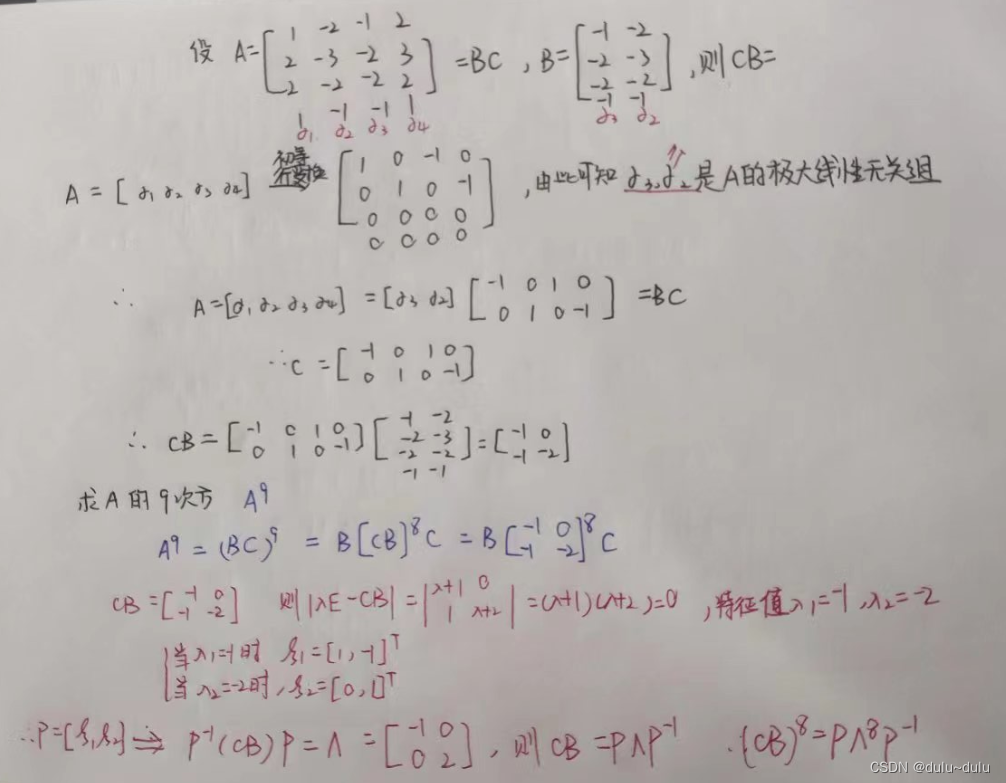 设 A=[1 -2 -1 2; 2 -3 -2 3; 2 -2 -2 2; 1 -1 -1 1] =BC , B=[-1 -2; -2 -3; -2 -2; -1 -1] ,则 CB=
α1 α2 α3 α4 α3 α2
A = [α1 α2 α3 α4] 初等行变换 [1 0 -1 0; 0 1 0 -1; 0 0 0 0; 0 0 0 0] , 由此可知 α3,α2 是A的极大线性无关组
∴ A=[α1 α2 α3 α4] = [α3 α2] [-1 0 1 0; 0 1 0 -1] =BC
∴C = [-1 0 1 0; 0 1 0 -1]
∴ CB = [-1 0 1 0; 0 1 0 -1] [-1 -2; -2 -3; -2 -2; -1 -1] = [-1 0; -1 -2]
求A的9次方 A⁹
A⁹ = (BC)⁹ = B[CB]⁸C = B[-1 0; -1 -2]⁸C
CB = [-1 0; -1 -2] 则 |λE-CB| = |λ+1 0; 1 λ+2| =(λ+1)(λ+2)=0 ,特征值λ1=-1,λ2=-2
当λ1=-1时 ξ1=[1,-1]ᵀ
当λ2=-2时,ξ2=[0,1]ᵀ
∴P=[ξ1,ξ2] ⟹ P⁻¹(CB)P = Λ = [-1 0; 0 2] , 则 CB =PΛP⁻¹ .(CB)⁸=PΛ⁸P⁻¹
CSDN @dulu~dulu